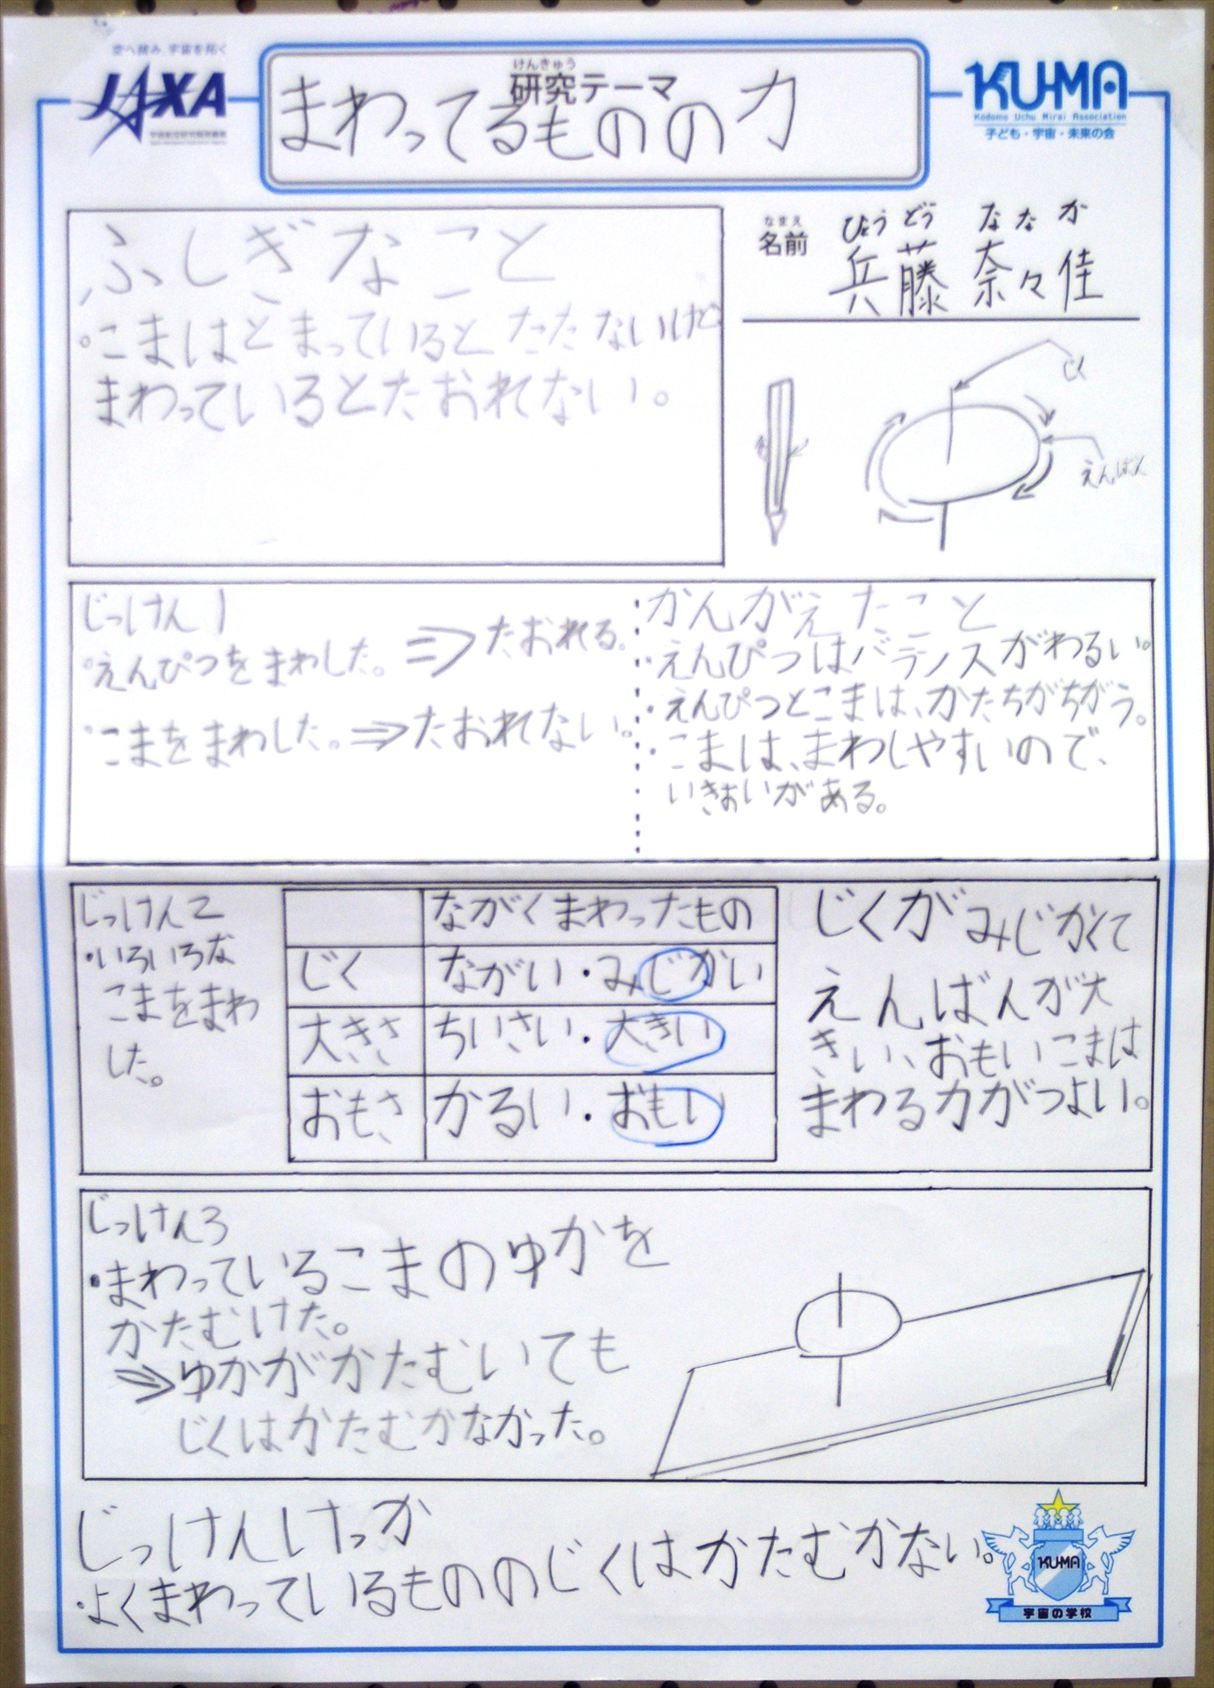 空へ挑み、宇宙を拓く
JAXA
けんきゅう
研究テーマ
まわってるもののの力
KU-MA
Kodomo Uchu Mirai Association
子ども・宇宙・未来の会
なまえ
名前
ひょう どう な な か
兵藤 奈々佳
ふしぎなこと
・こまはとまっているとたたないけど
まわっているとたおれない。
じく
えんばん
じっけん1
・えんぴつをまわした。⇒たおれる。
・こまをまわした。⇒たおれない。
かんがえたこと
・えんぴつはバランスがわるい。
・えんぴつとこまは、かたちがちがう。
・こまは、まわしやすいので、
いきおいがある。
じっけん2
・いろいろな
こまをまわ
した。
ながくまわったもの
じく ながい・みじかい
大きさ ちいさい・大きい
おもさ かるい・おもい
じくがみじかくて
えんばんが大
きい、おもいこまは
まわる力がつよい。
じっけん3
・まわっているこまのゆかを
かたむけた。
⇒ゆかがかたむいても
じくはかたむかなかった。
じっけんけっか
・よくまわっているもののじくはかたむかない。
KU-MA
宇宙の学校